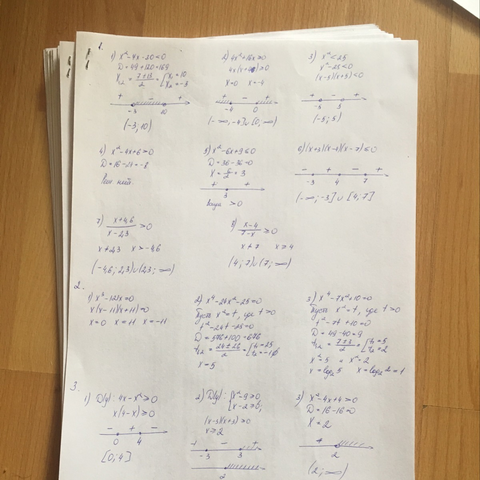 1.
1) x² - 7x - 30 < 0
D = 49 + 120 = 169
x₁,₂ = (7 ± 13)/2 = [x₁ = 10
x₂ = -3
+ - +
-3 10
(-3; 10)
2) 4x² + 16x ≥ 0
x = 0 x = -4
+ - +
-4 0
(-∞; -4] ∪ [0; ∞)
3) x² < 25
x² - 25 < 0
(x-5)(x+5) < 0
+ - +
-5 5
(-5; 5)
4) x² - 4x + 6 > 0
D = 16 - 24 = -8
5) x² - 6x + 9 ≤ 0
D = 36 - 36 = 0
x = 6/2 = 3
+ +
3
> 0
6) (x+3)(x-4)(x-7) ≤ 0
- + - +
-3 4 7
(-∞; -3] ∪ [4; 7]
7) (x+4,6)/(x-2,3) > 0
x ≠ 2,3 x > -4,6
(-4,6; 2,3) ∪ (2,3; ∞)
8) (x-4)/(7-x) ≥ 0
x ≠ 7 x ≥ 4
(4; 7) ∪ (7; ∞)
2.
1) x³ - 121x = 0
x(x-11)(x+11) = 0
x = 0 x = 11 x = -11
2) x⁴ - 24x² - 25 = 0
Пусть x² = t, где t > 0
t² - 24t - 25 = 0
D = 576 + 100 = 676
t₁,₂ = (24 ± 26)/2 = [t₁ = 25
t₂ = -1
x = 5
3) x⁴ - 7x² + 10 = 0
Пусть x² = t, где t > 0
t² - 7t + 10 = 0
D = 49 - 40 = 9
t₁,₂ = (7 ± 3)/2 = [t₁ = 5
t₂ = 2
x² = 5 x² = 2
x = log₂ 5 x = log₂ 2 = 1
3.
1) D(y): 4x - x² ≥ 0
x(4-x) ≥ 0
- + -
0 4
[0; 4]
2) D(y): {x² - 9 ≥ 0
x - 2 ≥ 0;
(x-3)(x+3) ≥ 0
x ≥ 2
+ - +
-3 3
2
3) x² - 4x + 4 > 0
D = 16 - 16 = 0
x = 2
+
2
(2; ∞)